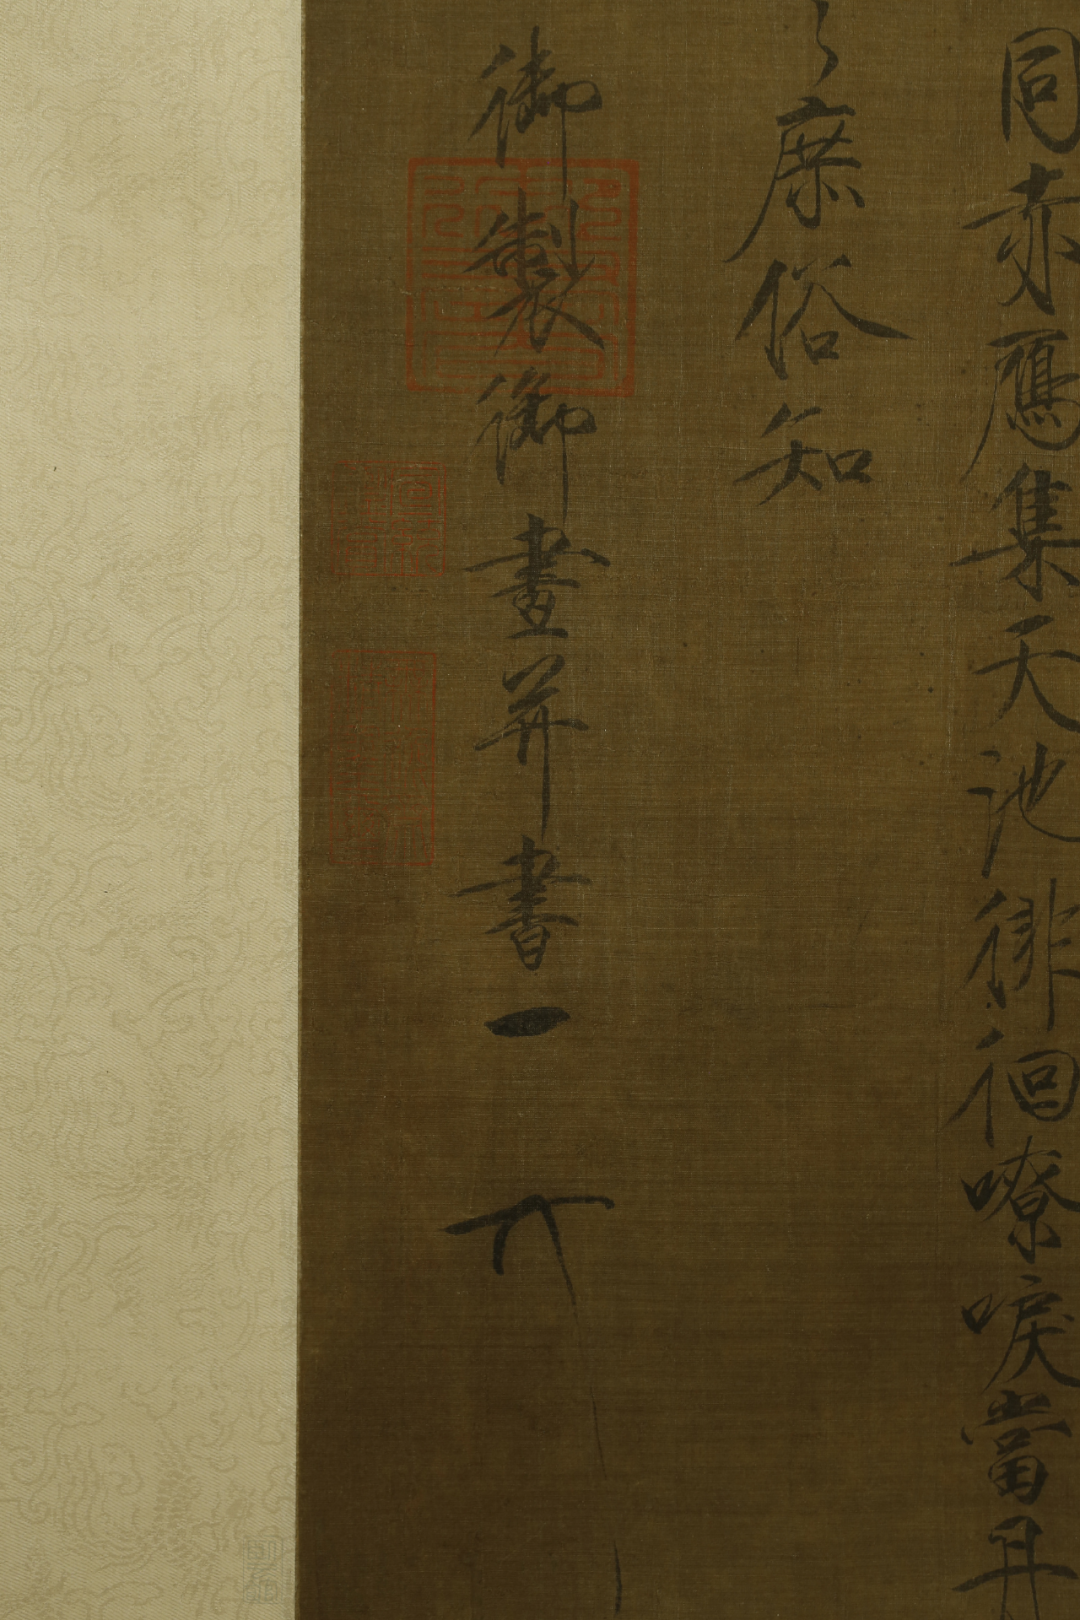 同赤鴈集天池徘徊嘹唳當丹
庶俗知
御製御畫并書